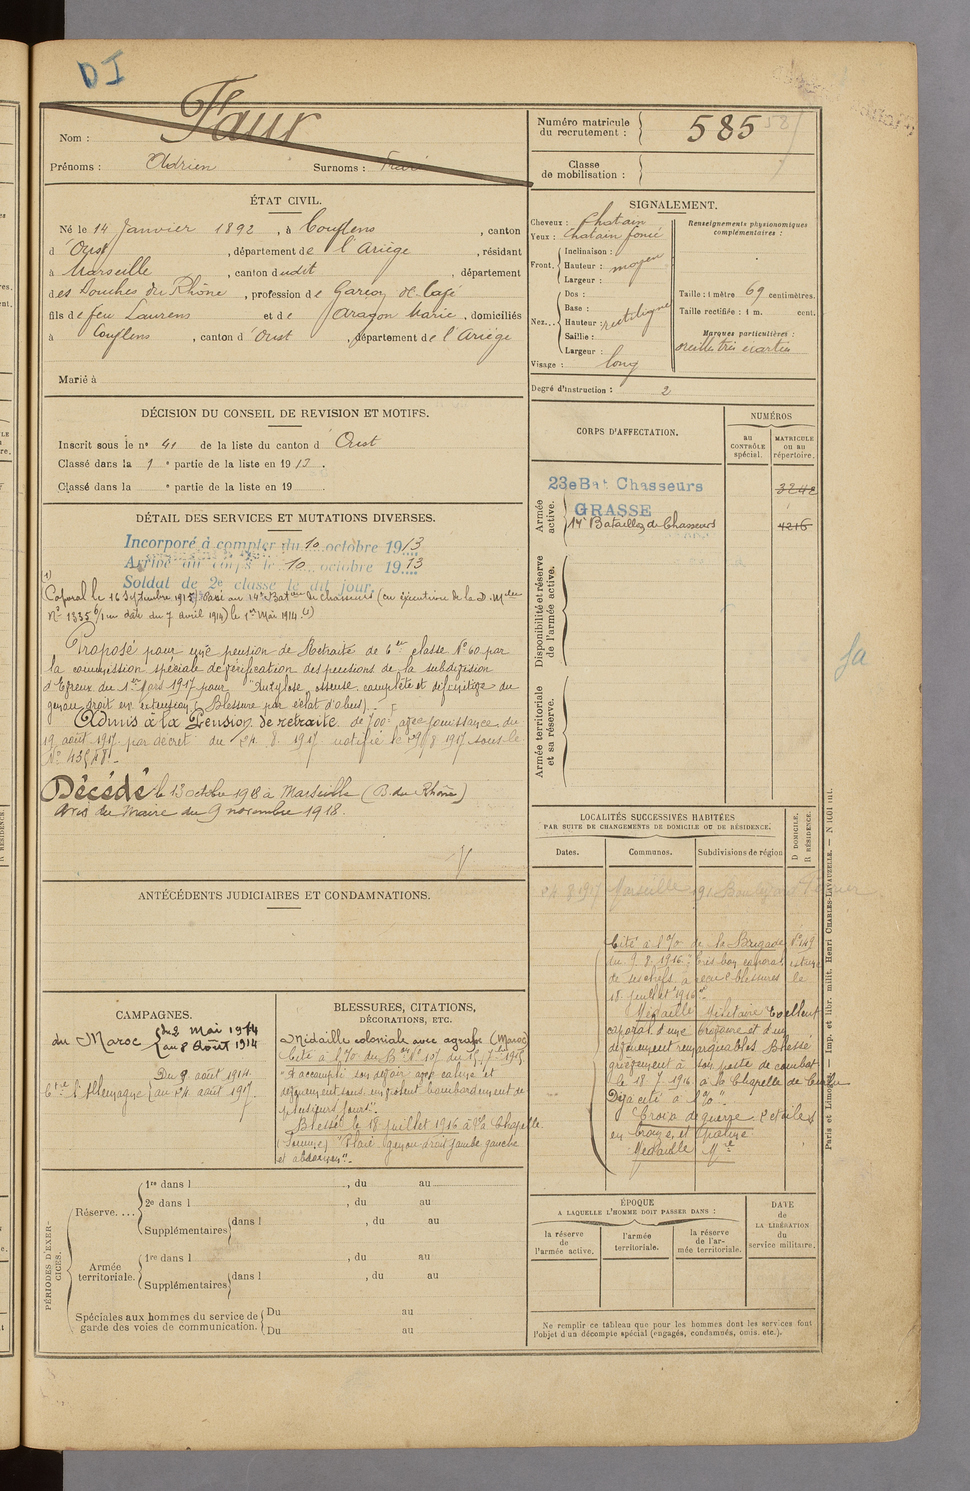 DI
Nom : Faur
Prénoms : Adrien Surnoms :
Numéro matricule du recrutement : 585
Classe de mobilisation :
ÉTAT CIVIL.
Né le 14 Janvier 1892, à Couflens, canton
d'Oust, département de l'Ariège, résidant
à Marseille, canton dudit, département
des Bouches du Rhône, profession de Garçon de Café
fils de feu Laurens et de Aragon Marie, domiciliés
à Couflens, canton d'Oust, département de l'Ariège
Marié à
SIGNALEMENT.
Cheveux : Chatain
Yeux : Chatain foncé
Front. Inclinaison :
Hauteur : moyen
Largeur :
Nez... Dos :
Base :
Hauteur : rectiligne
Saillie :
Largeur :
Visage : long
Renseignements physionomiques complémentaires :
Taille : 1 mètre 69 centimètres.
Taille rectifiée : 1 m. cent.
Marques particulières :
oreilles très écartées
Degré d'instruction : 2
DÉCISION DU CONSEIL DE REVISION ET MOTIFS.
Inscrit sous le n° 41 de la liste du canton d'Oust
Classé dans la 1e partie de la liste en 1913.
Classé dans la e partie de la liste en 19
CORPS D'AFFECTATION.
NUMÉROS
au CONTRÔLE spécial.
MATRICULE ou au répertoire.
Armée active.
23e Bat Chasseurs 3242
GRASSE
14e Bataillon de Chasseurs 4216
Disponibilité et réserve de l'armée active.
Armée territoriale et sa réserve.
DÉTAIL DES SERVICES ET MUTATIONS DIVERSES.
Incorporé à compter du 10 octobre 1913
Arrivé au corps le 10 octobre 1913
Soldat de 2e classe le dit jour.
(1)
Caporal le 16 Septembre 1915 Passé au 14e Bat on de chasseurs (en exécution de la D. Mlle
N° 1335 6/1 en date du 7 avril 1914) le 1er Mai 1914. (1)
Proposé pour une pension de Retraite de 6e classe N° 60 par
la commission spéciale de vérification des pensions de la subdivision
d'Evreux du 1er Mars 1917 pour "Ankylose osseuse complète et définitive du
genou droit en extension. Blessure par éclat d'obus).
Admis à la Pension de retraite de 700 F avec jouissance du
19 août 1917 par décret du 24. 8. 1917 notifié le 29 8 1917 sous le
N° 43548.
Décédé le 13 octobre 1918 à Marseille (B. du Rhône)
Avis du Maire du 9 novembre 1918.
ANTÉCÉDENTS JUDICIAIRES ET CONDAMNATIONS.
LOCALITÉS SUCCESSIVES HABITÉES
PAR SUITE DE CHANGEMENTS DE DOMICILE OU DE RÉSIDENCE.
Dates. Communes. Subdivisions de région D DOMICILE. R RÉSIDENCE.
24 8 1917 Marseille 91 Boulevard
Cité à l'% de la Brigade N° 149
du 9. 8. 1916 : très bon caporal estimé
de ses chefs, a reçu 2 blessures le
18 juillet 1916".
Médaille Militaire Excellent
caporal d'une bravoure et d'un
dévouement remarquables. Blessé
grièvement à son poste de combat
le 18 7. 1916 à la Chapelle de
Déjà cité à l'%".
Croix de guerre 2 étoiles
en bronze, et palme
Médaille Mre
CAMPAGNES.
du Maroc du 2 Mai 1914
au 8 Août 1914
Ctre l'Allemagne Du 9 août 1914
au 24 août 1917.
BLESSURES, CITATIONS, DÉCORATIONS, ETC.
Médaille coloniale avec agrafe (Maroc)
"A accompli son devoir avec calme et
dévouement sous un violent bombardement de
plusieurs jours".
Blessé le 18 juillet 1916 à la Chapelle
(Somme) "Plaie genou droit jambe gauche
et abdomen".
PÉRIODES D'EXERCICES.
Réserve.... 1re dans l , du au
2e dans l , du au
Supplémentaires dans l , du au
Armée territoriale. 1re dans l , du au
Supplémentaires dans l , du au
Spéciales aux hommes du service de garde des voies de communication. Du au
Du au
ÉPOQUE
A LAQUELLE L'HOMME DOIT PASSER DANS :
la réserve de l'armée active.
l'armée territoriale.
la réserve de l'armée territoriale.
DATE de LA LIBÉRATION du service militaire.
Ne remplir ce tableau que pour les hommes dont les services font
l'objet d'un décompte spécial (engagés, condamnés, omis, etc.).
Paris et Limoges. — Imp. et libr. milit. Henri CHARLES-LAVAUZELLE.